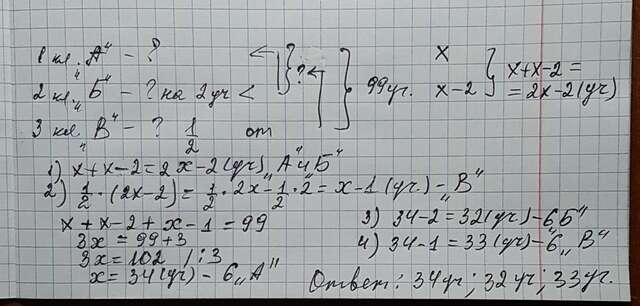 1 кл. „А" - ?
2 кл. „Б" - ? на 2 уч <
3 кл. „В" - ? 1/2 от
?
99 уч.
x
x-2
x+x-2=
=2x-2(уч)
1) x+x-2=2x-2(уч) „А" и „Б"
2) 1/2·(2x-2)=1/2·2x-1/2·2=x-1(уч.)-„В"
x+x-2+x-1=99
3x=99+3
3x=102 /:3
x=34(уч)-б „А"
3) 34-2=32(уч)-б „Б"
4) 34-1=33(уч)-б „В"
Ответ: 34 уч; 32 уч; 33 уч.